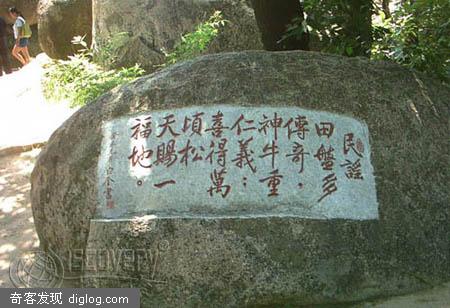 民謠
田盤多
傳奇，
神牛重
仁義；
喜得萬
頃松
天賜一
福地。
ECOVERY
奇客发现 diglog.com